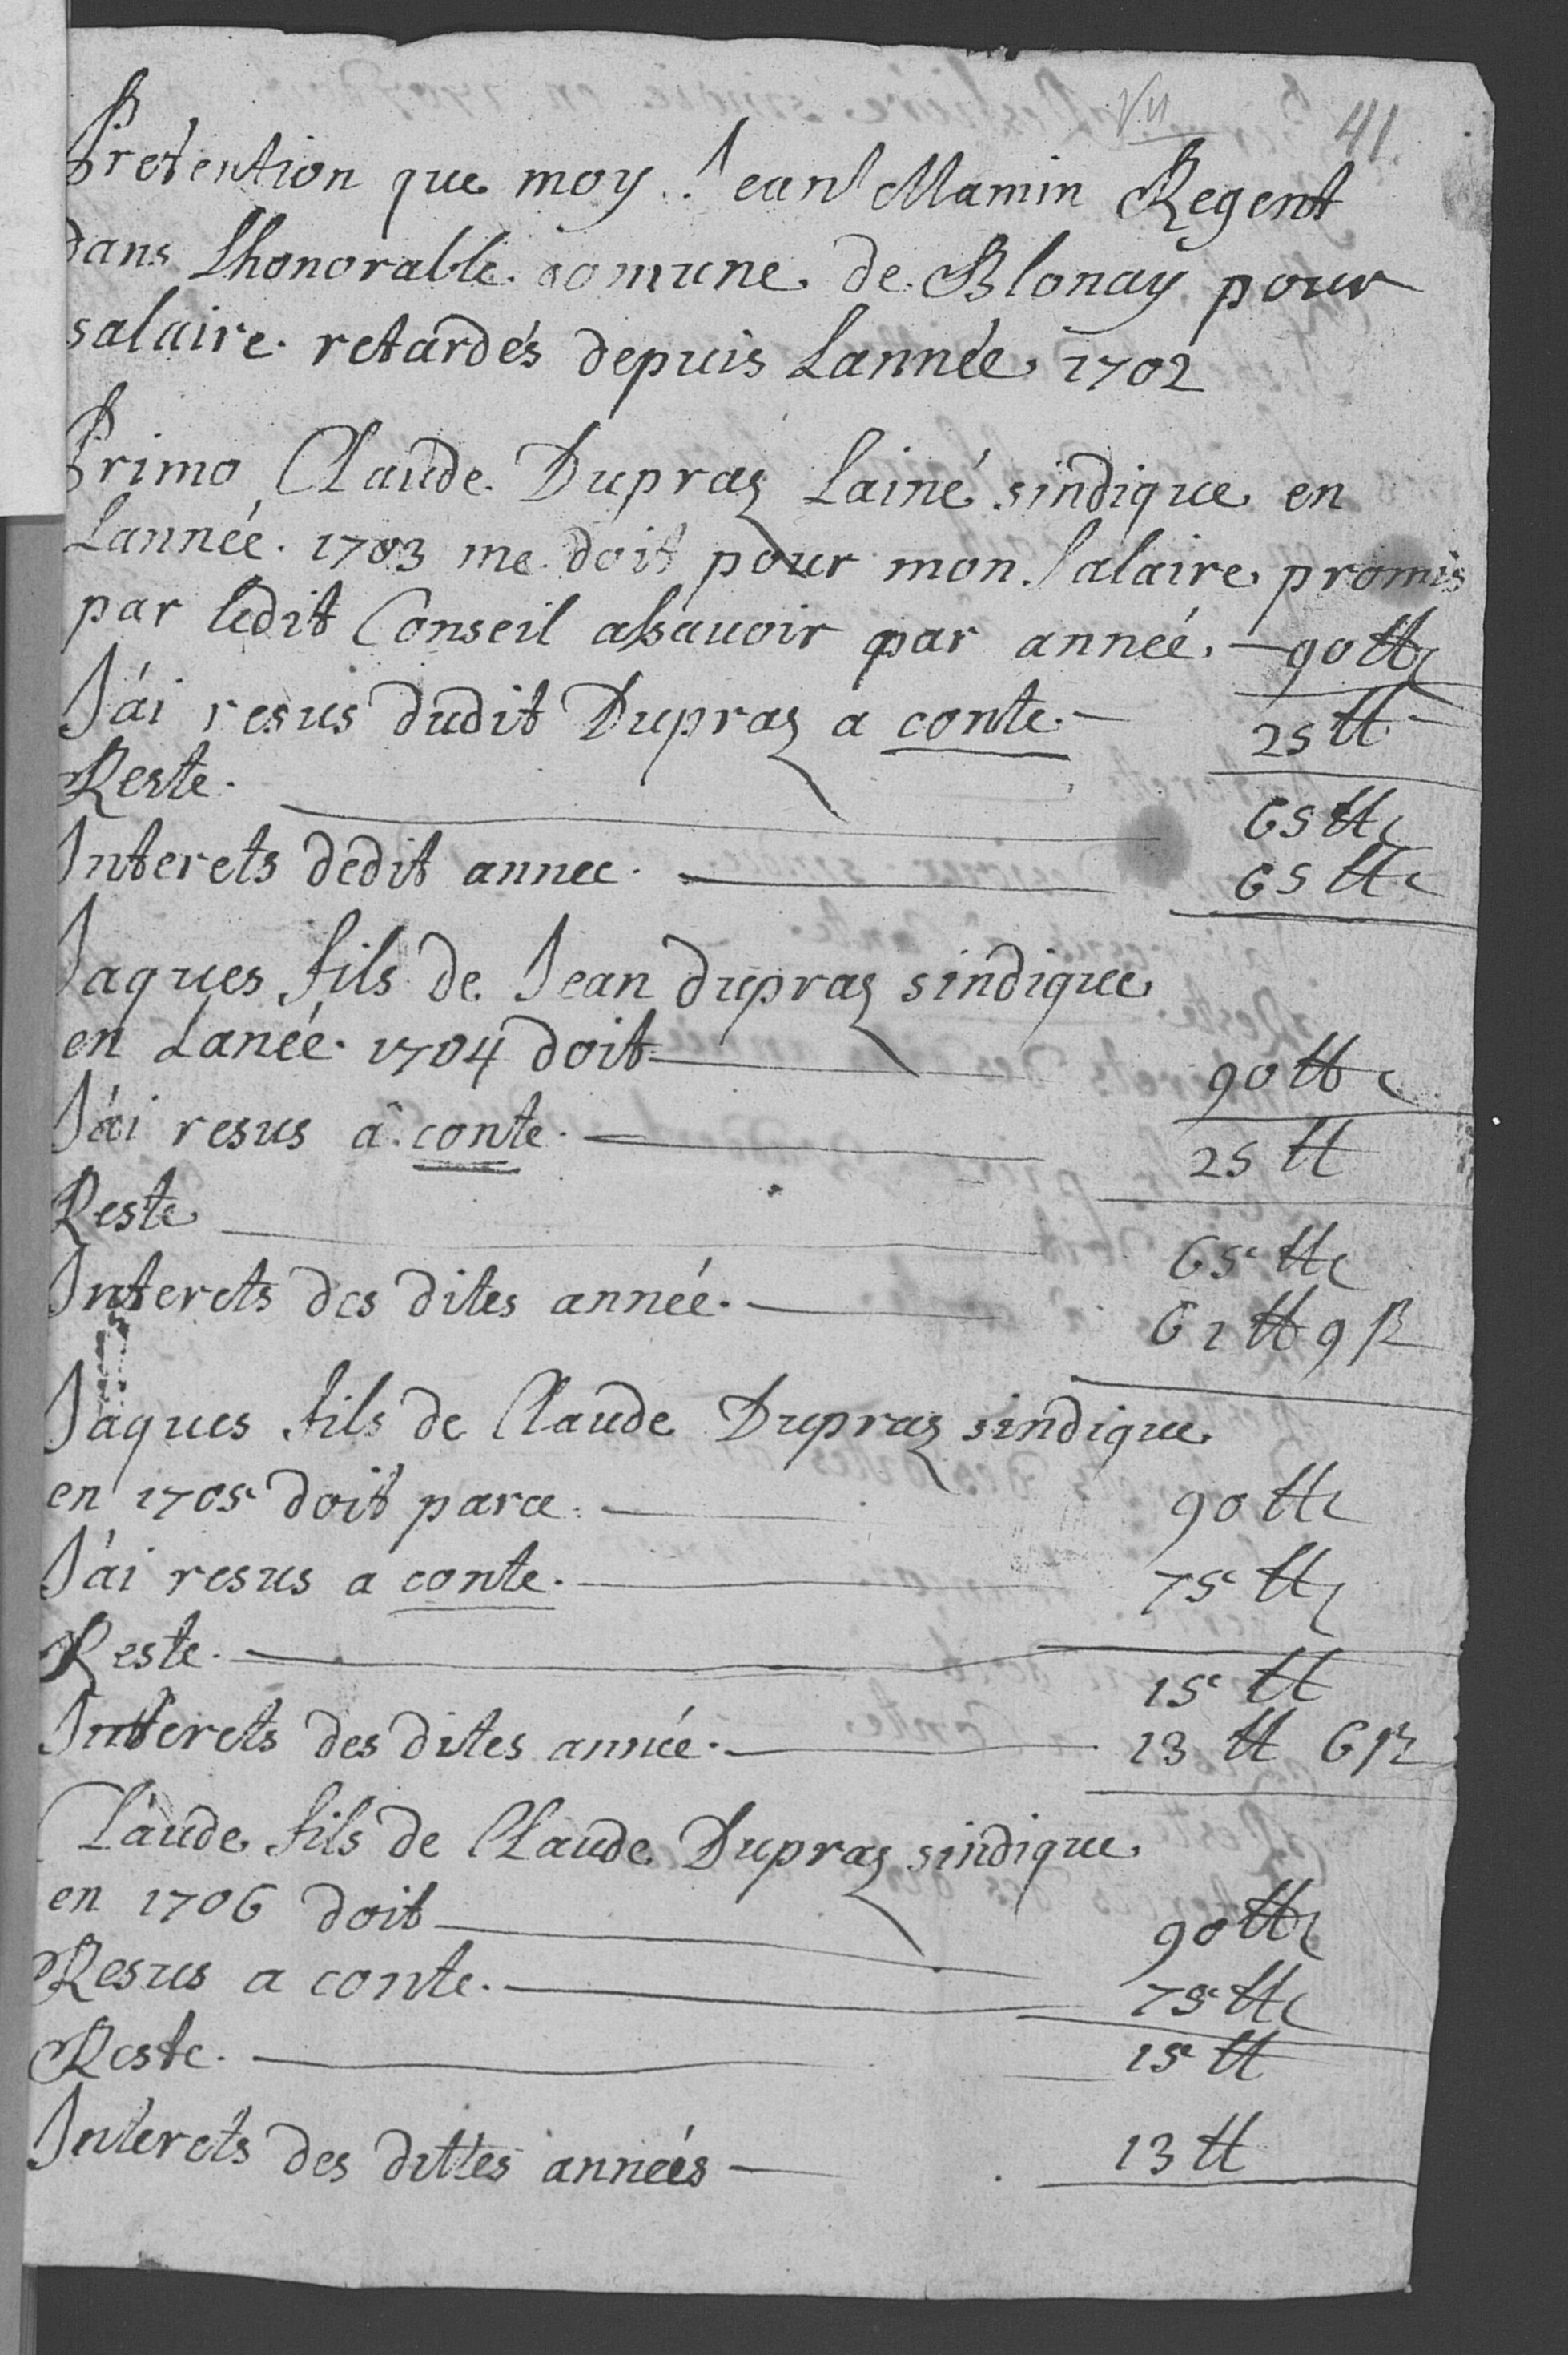 41
Pretention que moy Jean Mamin Regent
dans Lhonorable comune de Blonay pour
salaire retardés depuis Lannée 1702
Primo Claude Dupraz Lainé sindique en
Lannée 1703 me doit pour mon salaire promis
par ledit Conseil assauoir par année — 90 ℔
J'ai resus dudit Dupraz a conte — 25 ℔
Reste — 65 ℔
Interets dedit annee — 65 ℔
Jaques fils de Jean dupraz sindique
en Lanée 1704 doit — 90 ℔
J'ai resus â conte — 25 ℔
Reste — 65 ℔
Interets des dites année — 61 ℔ 9 ß
Jaques fils de Claude Dupraz sindique
en 1705 doit — 90 ℔
J'ai resus a conte — 75 ℔
Reste — 15 ℔
Interets des dites année — 13 ℔ 6 ß
Claude fils de Claude Dupraz sindique
en 1706 doit — 90 ℔
Resus a conte — 75 ℔
Reste — 15 ℔
Interets des dittes années — 13 ℔